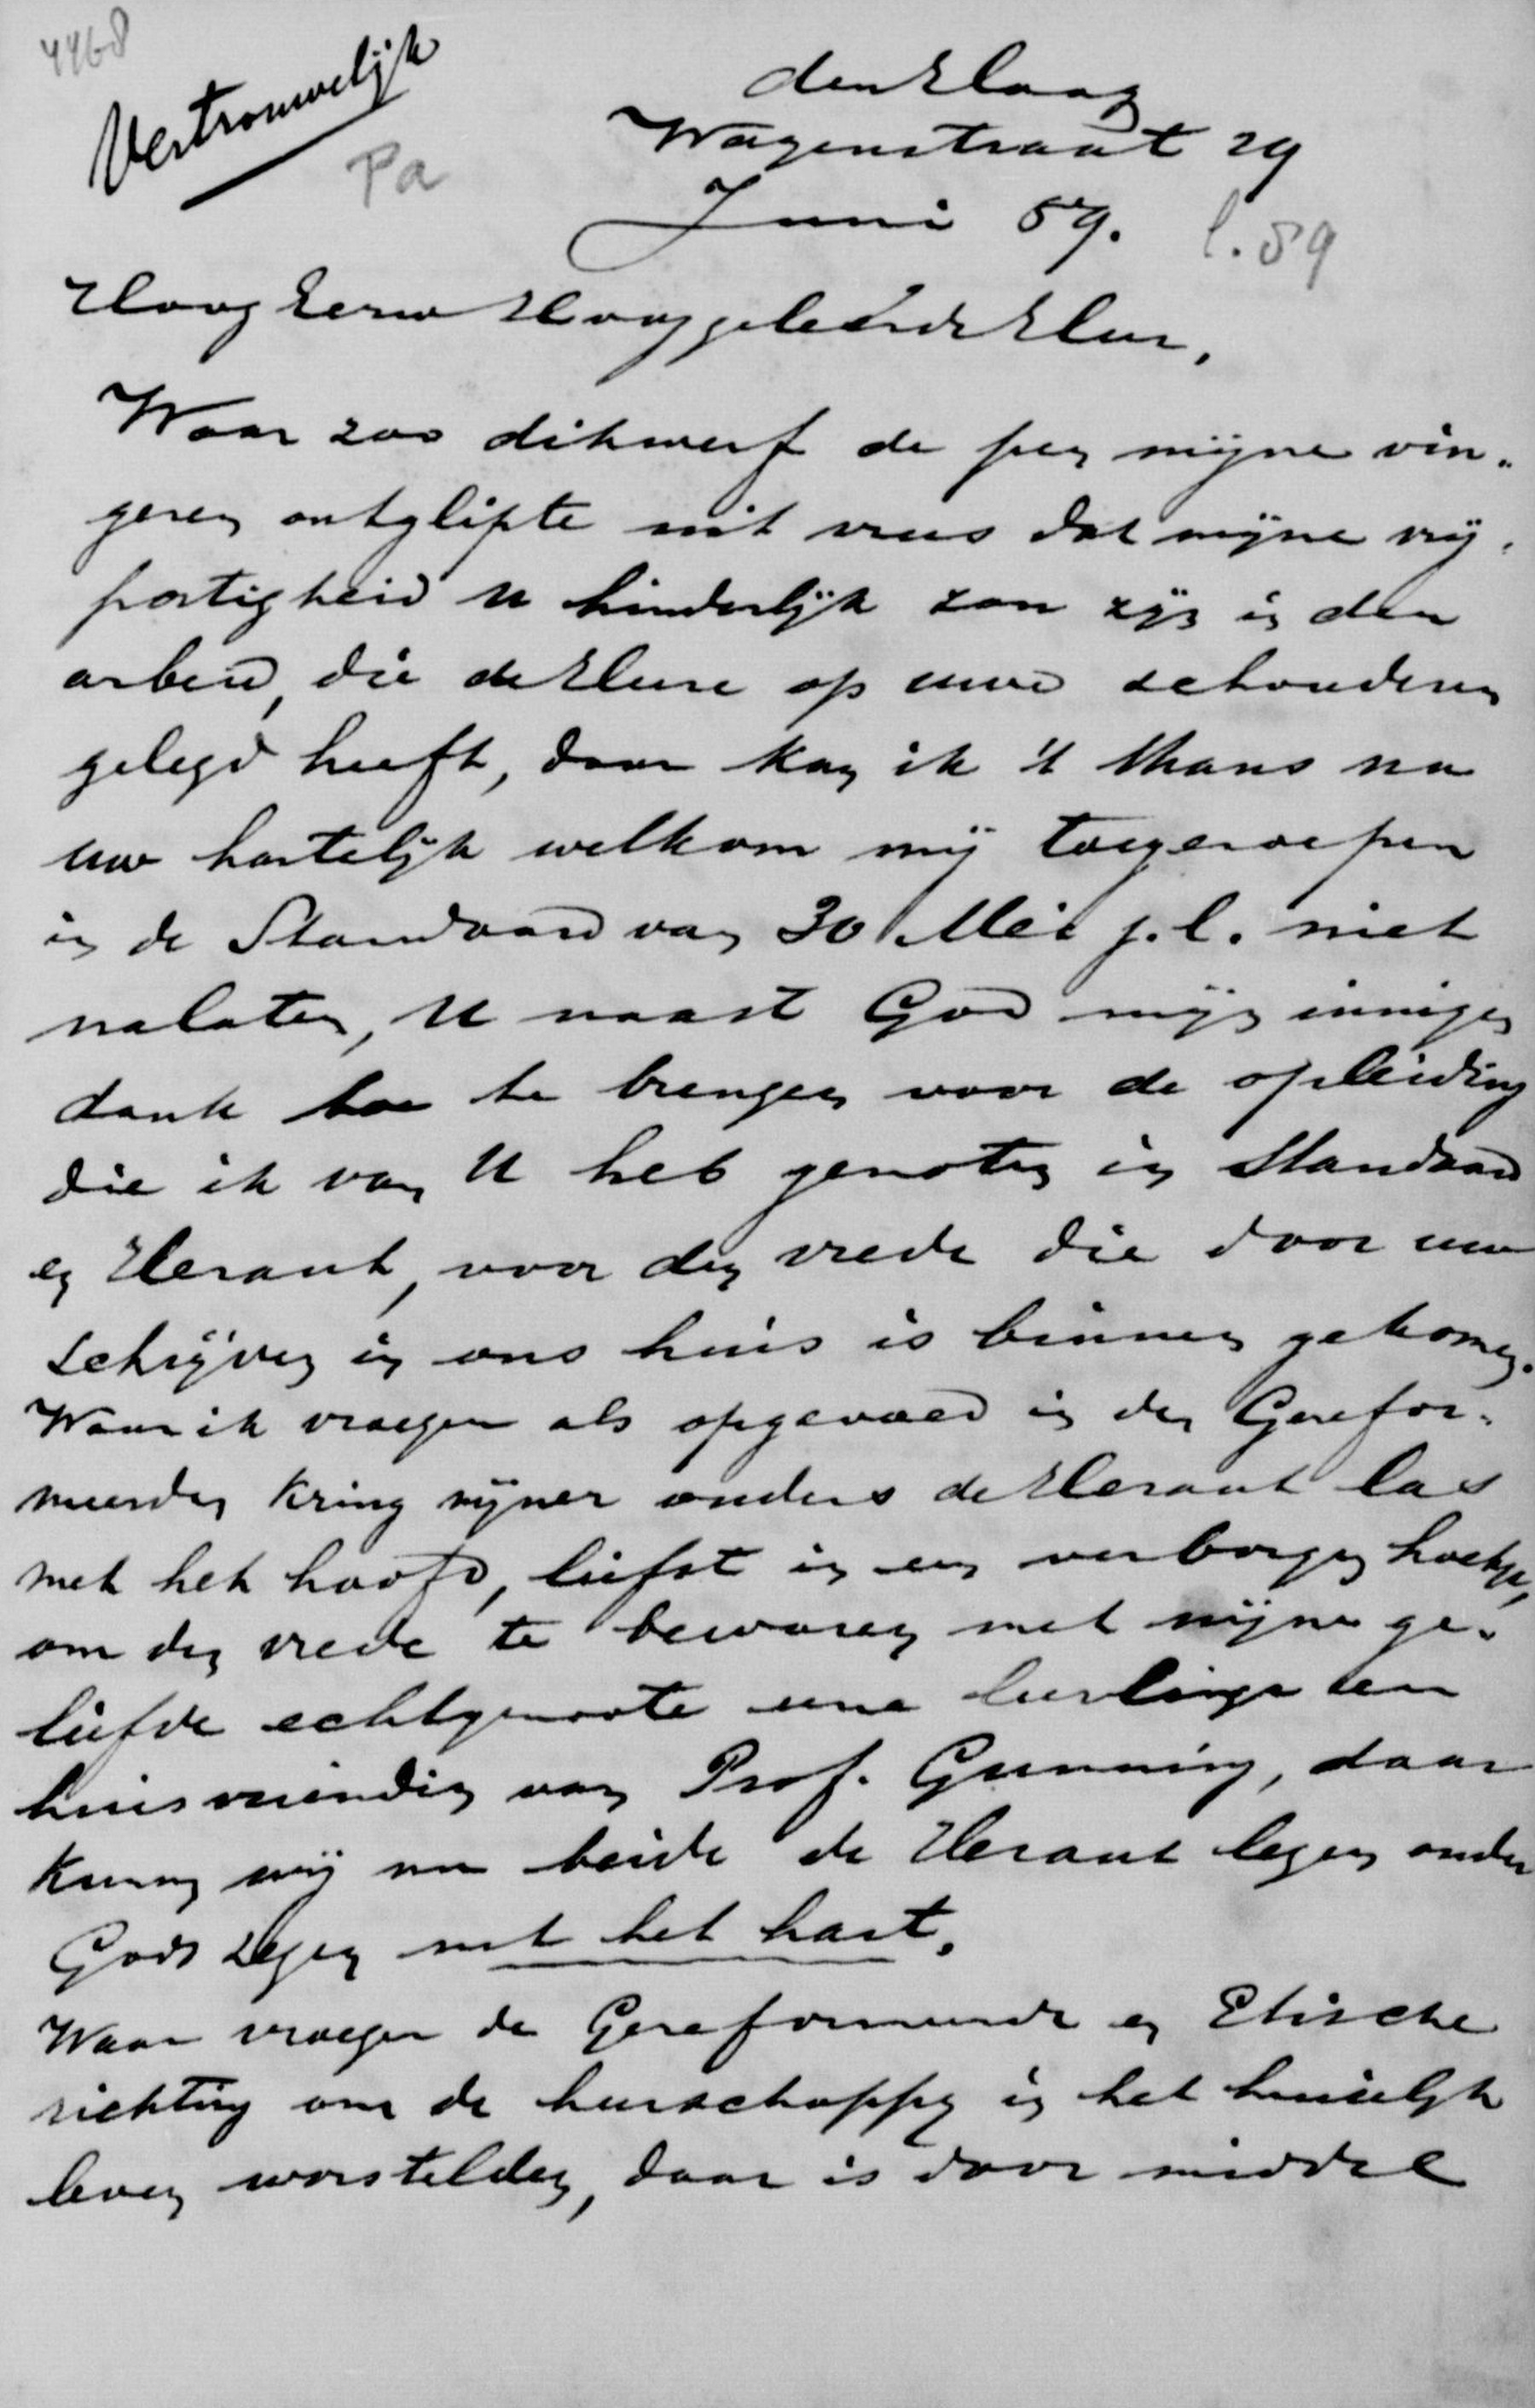 4468
Vertrouwelijk
Pa
den Haag
Wagenstraat 29
Juni 89.
l. 89
HoogEerw Hooggeleerde Heer,
Waar zoo dikwerf de pen mijne vin-
geren ontglipte uit vrees dat mijne vrij-
postigheid U hinderlijk zou zijn in den
arbeid, die de Heere op uwe schouderen
gelegd heeft, daar kan ik 't thans na
uw hartelijk welkom mij toegeroepen
in de Standaard van 30 Mei j.l. niet
nalaten, U naast God mijn innigen
dank toe te brengen voor de opleiding
die ik van U heb genoten in Standaard
en Heraut, voor den vrede die door uw
schrijven in ons huis is binnen gekomen.
Waar ik vroeger als opgevoed in den Gerefor-
meerden kring mijner ouders de Heraut las
met het hoofd, liefst in een verborgen hoekje,
om den vrede te bewaren met mijne ge-
liefde echtgenoote eene leerlinge en
huisvriendin van Prof. Gunning, daar
kunnen wij nu beide de Heraut lezen onder
Gods zegen met het hart.
Waar vroeger de Gereformeerde en Etische
richting om de heerschappij in het huiselijk
leven worstelden, daar is door middel